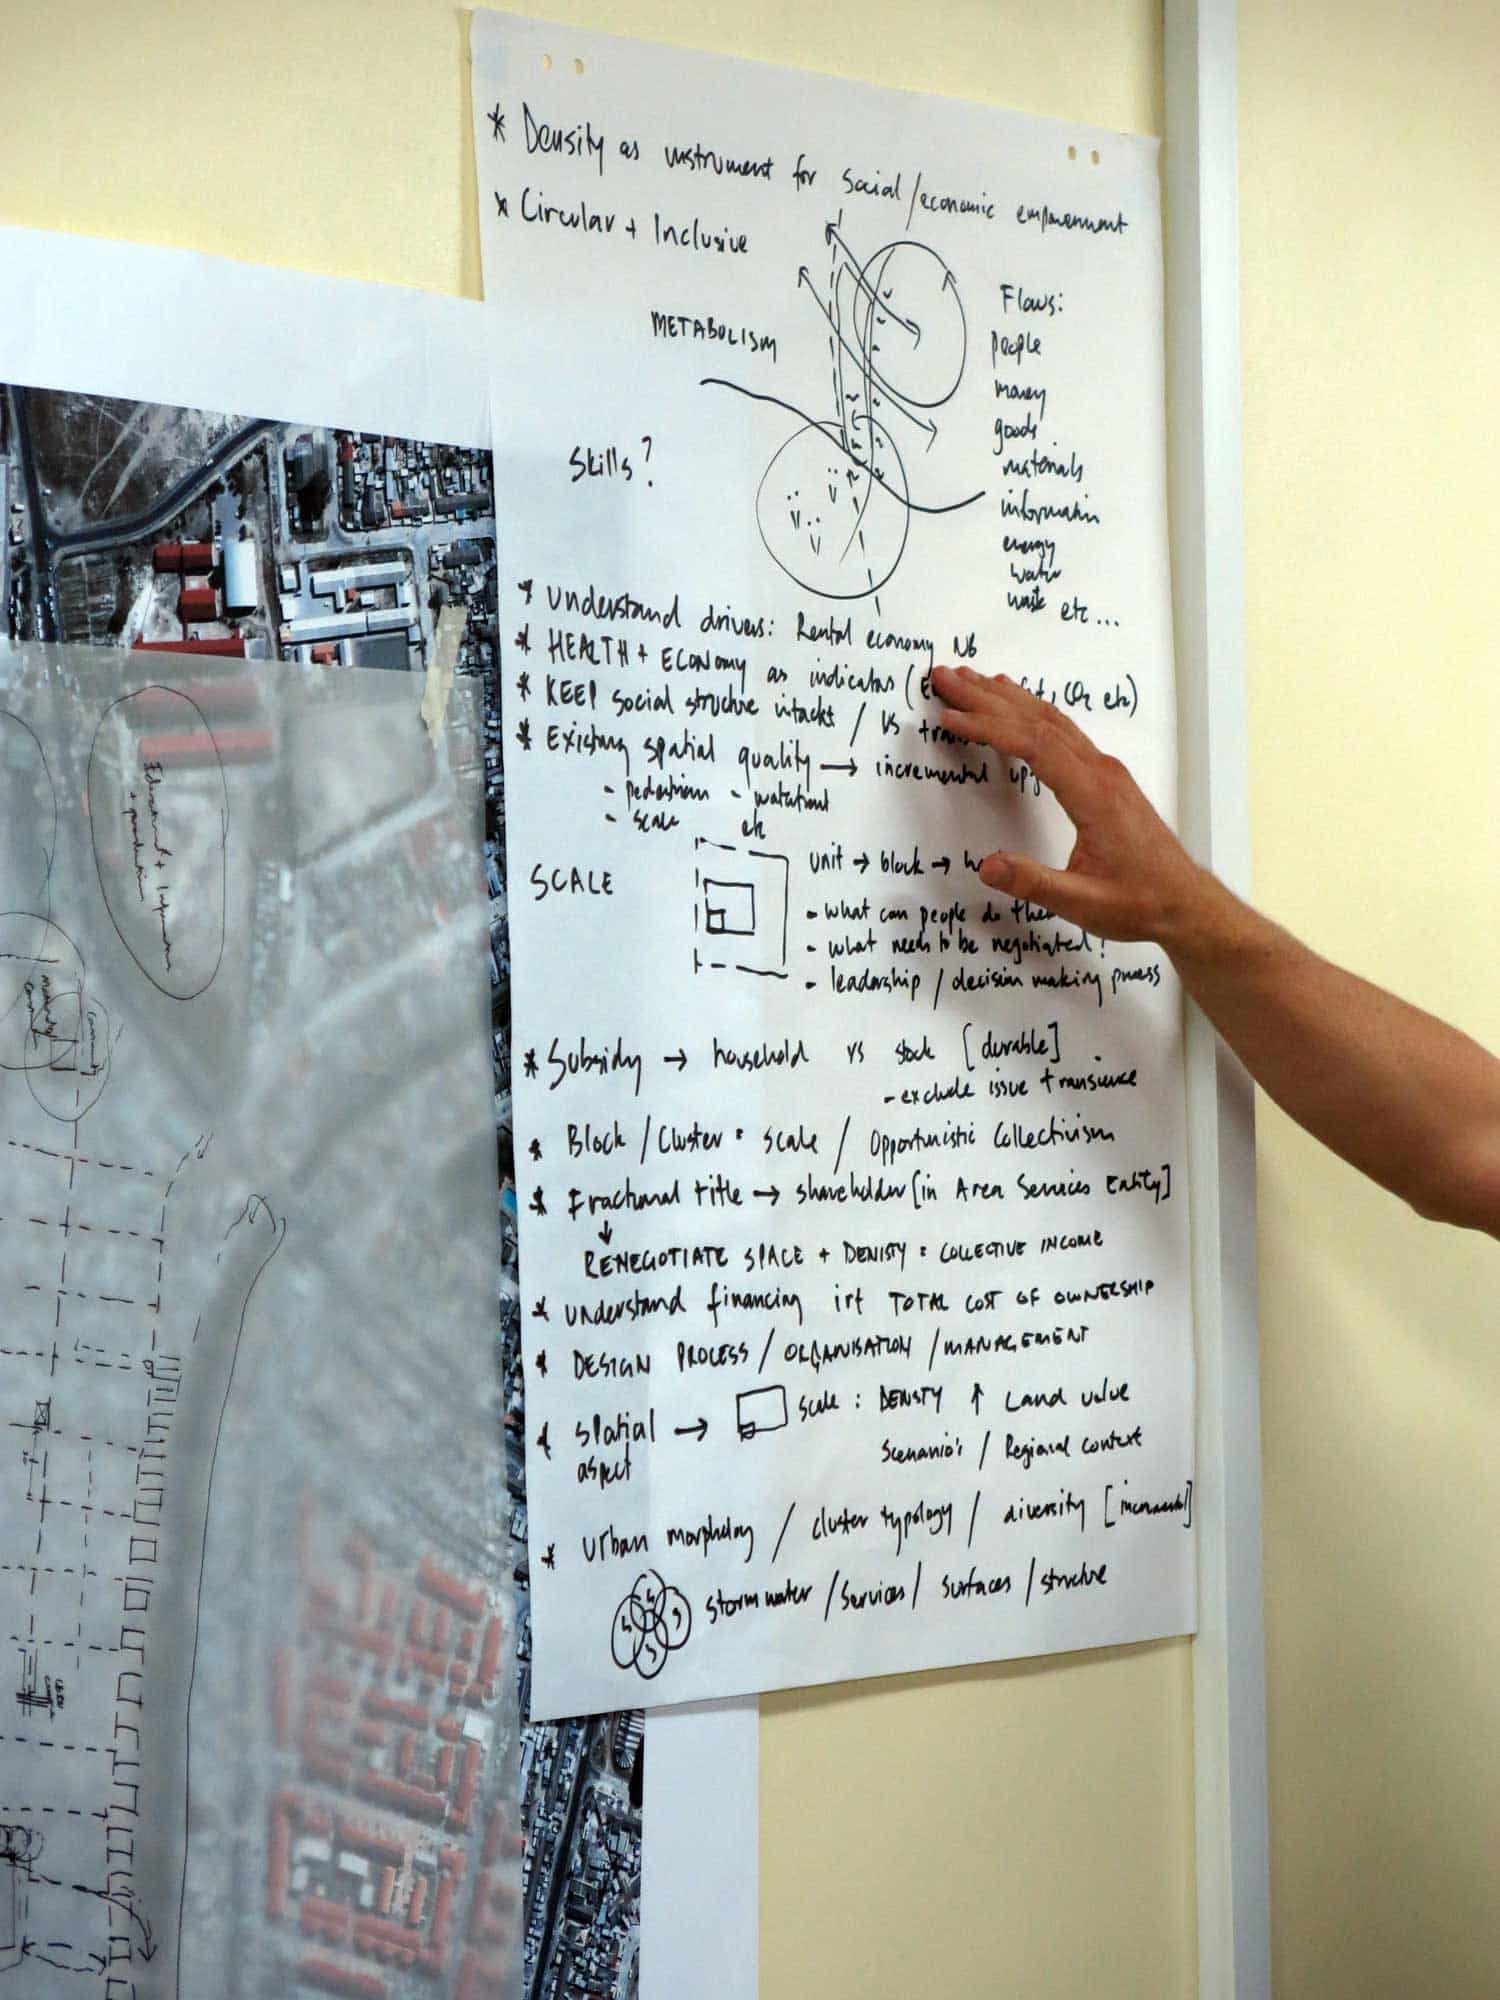 * Density as instrument for Social/economic empowerment
* Circular + Inclusive
METABOLISM
Flows:
people
money
goods
materials
information
energy
water
waste etc...
Skills?
* Understand drivers: Rental economy NB
* HEALTH + ECONOMY as indicators ( , CO2 etc)
* KEEP social structure intackt / vs
* Existing spatial quality → incremental
- pedestrian - waterfront
- scale etc
SCALE
unit → block →
- what can people do
- what needs to be negotiated?
- leadership / decision making process
* Subsidy → household vs stock [durable]
- exclude issue transience
* Block / Cluster = scale / Opportunistic Collectivism
* Fractional title → shareholder [in Area Services Entity]
↓
RENEGOTIATE SPACE + DENISTY = COLLECTIVE INCOME
* understand financing irt TOTAL COST OF OWNERSHIP
* DESIGN PROCESS / ORGANISATION / MANAGEMENT
* Spatial aspect → scale : DENSTY ↑ Land value
Scenario's / Regional context
* Urban morphology / cluster typology / diversity [incremental]
S S S S
stormwater / Services / surfaces / structure